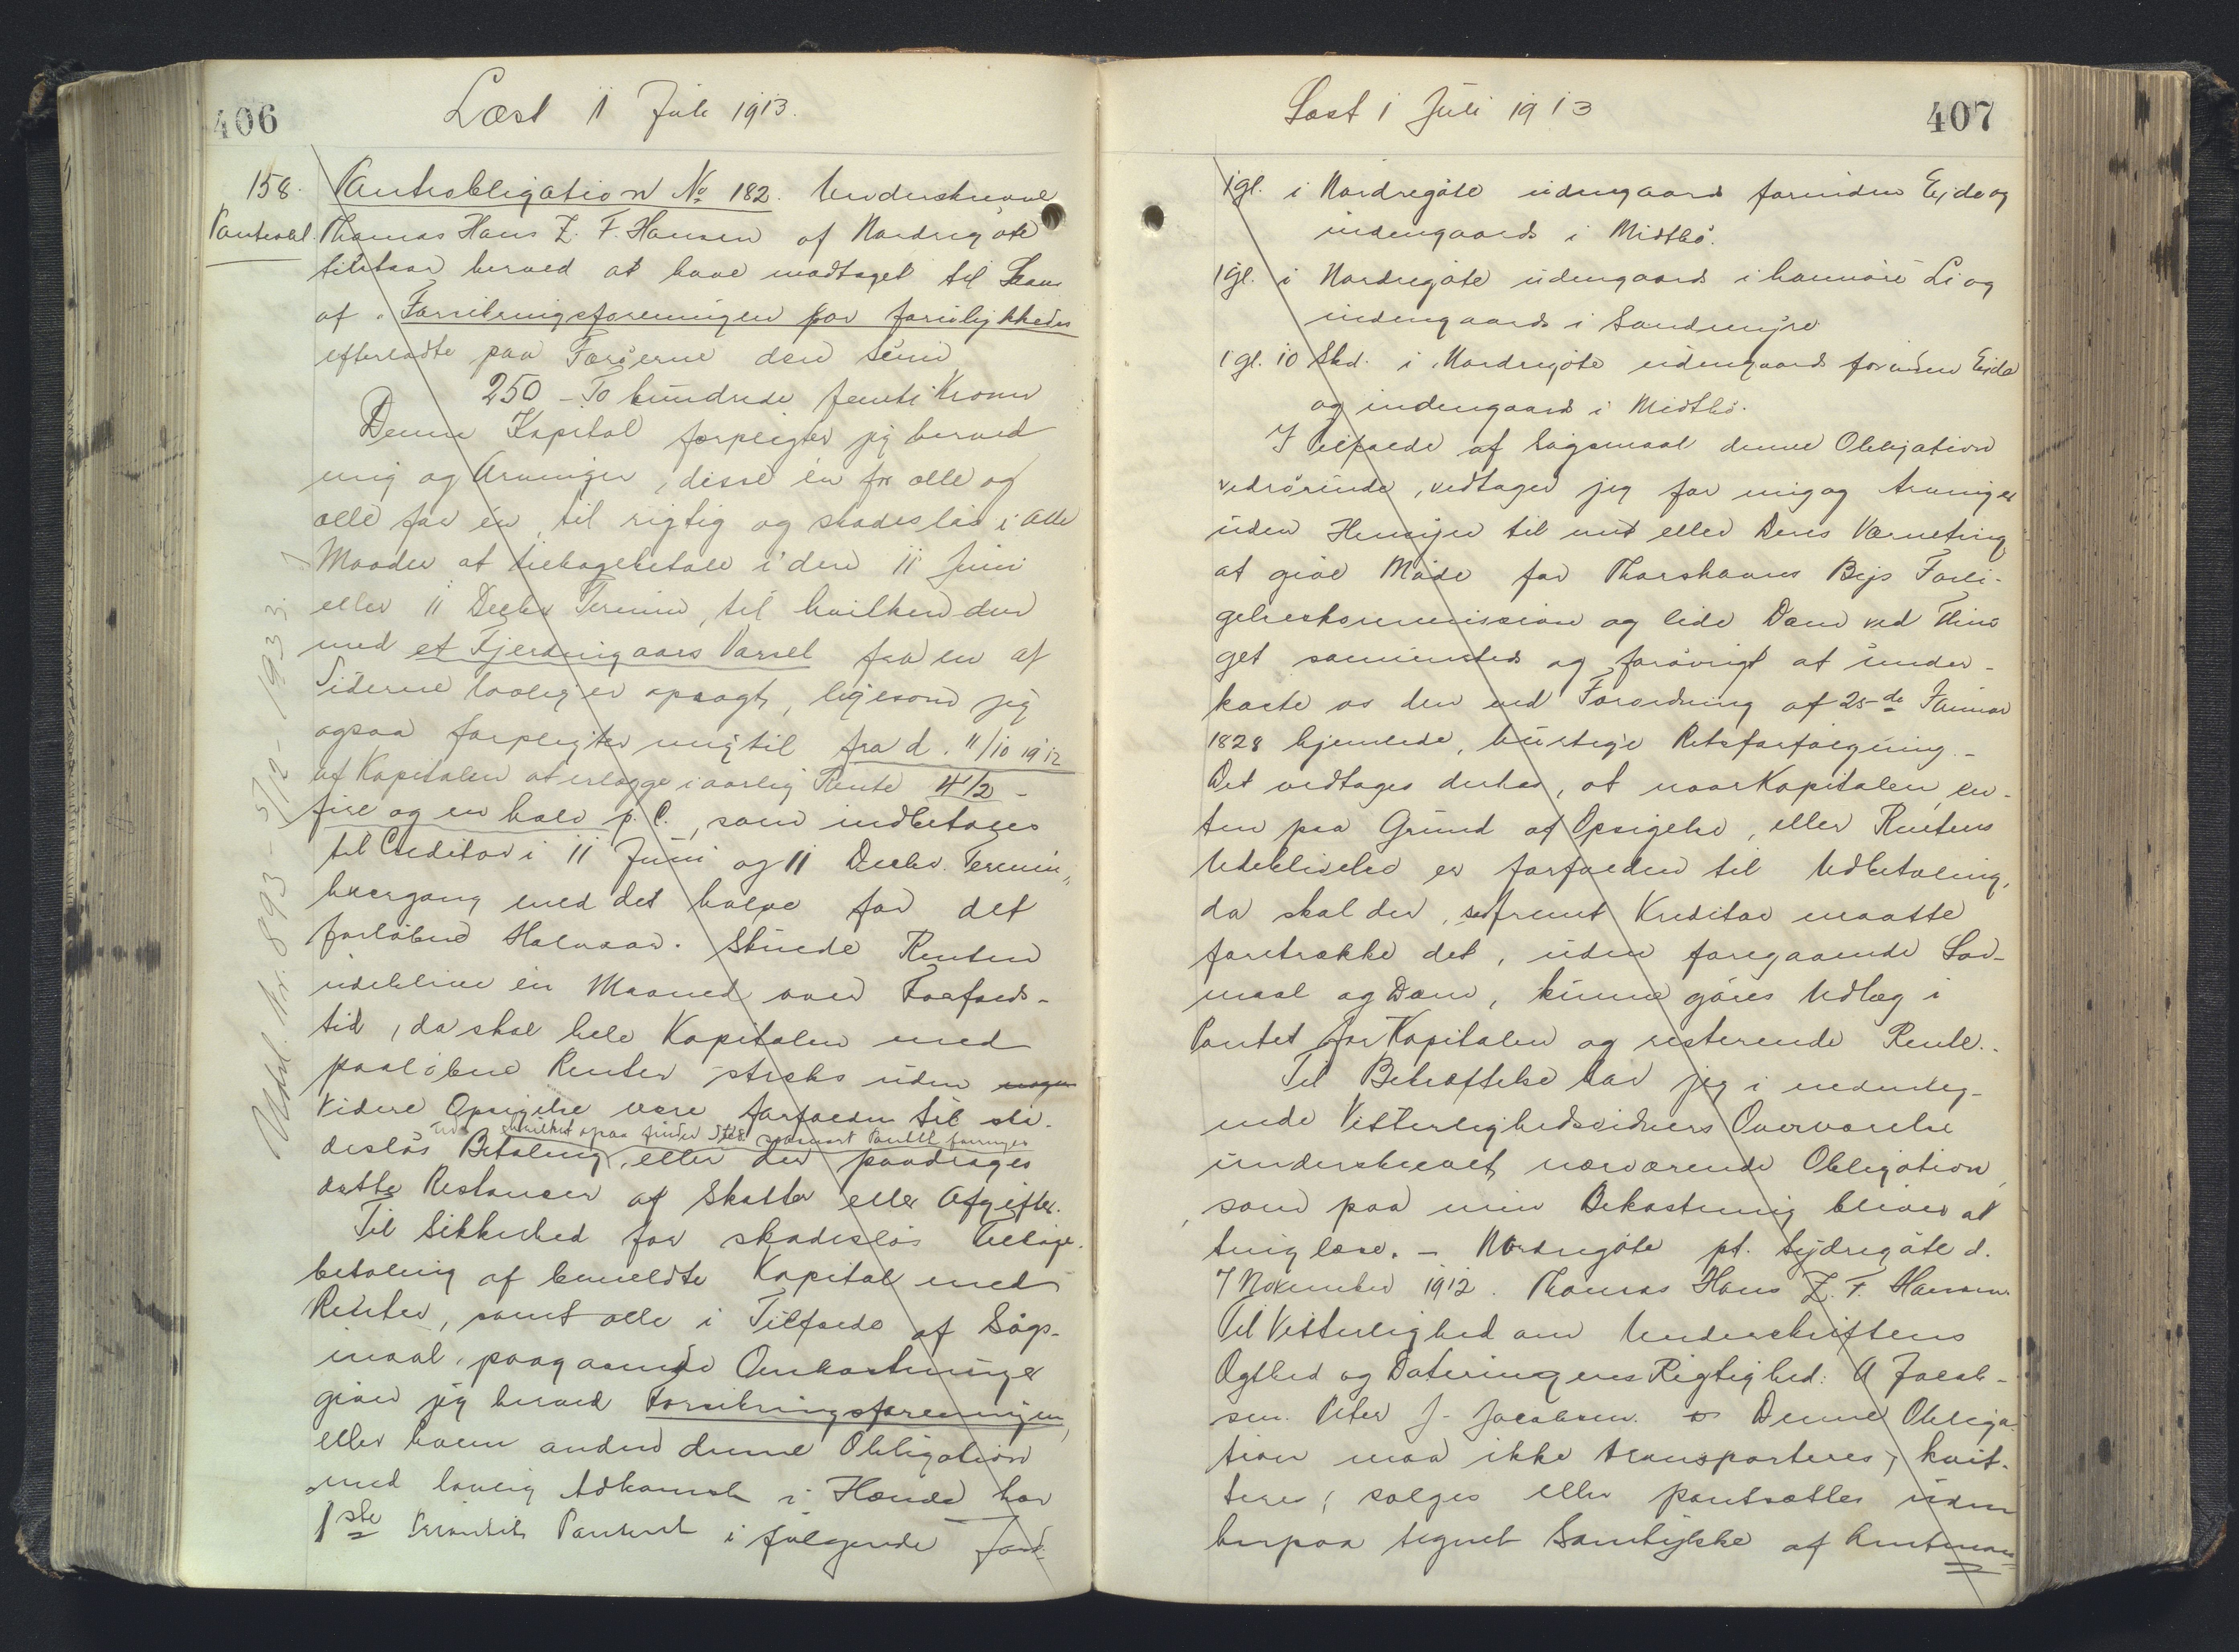 406
Læst 1 Juli 1913.
158.
Panteobl.
Panteobligation No 182. Underskrevne
Thomas Hans Z. F. Hansen af Nordregöte
tilstaar herved at have modtaget til Laans
af "Forsikringsforeningen for forulykkedes
efterladte paa Færöerne den Sum
250 - To hundrede femti Kroner
Denne Kapital forpligter jeg herved
mig og Arvinger, disse én for alle og
alle for én, til rigtig og skadeslös i alle
Maader at tilbagebetale i den 11 Juni
eller 11 Decbr Termin, til hvilken den
med et Fjerdingaars Varsel fra en af
Siderne lovlig er opsagt, ligesom jeg
ogsaa forpligter mig til fra d. 11/10 1912
af Kapitalen at erlægge i aarlig Rente 4 1/2 -
fire og en halv p. C., som indbetales
til Creditor i 11 Juni og 11 Decbr. Termin,
hvergang med det halve for det
forlöbne Halvaar. Skulde Renten
udeblive én Maaned over Forfalds-
tid, da skal hele Kapitalen med
paalöbne Renter straks uden nogen
videre Opsigelse være forfalden til ska-
hvilket ogsaa finder Sted saasnart Pantet forringes
deslös Betaling, eller der paadrages
dette Restancer af Skatter eller Afgifter.
Til Sikkerhed for skadeslös Tilbage-
betaling af bemeldte Kapital med
Renter, samt alle i Tilfælde af Sögs-
maal, paagaaende Omkostninger
giver jeg herved Forsikringsforeningen,
eller hvem anden denne Obligation
med lovlig Adkomst i Hænde har
1ste Prioritets Panteret i fölgende Jord:
Udsl. Nr. 893 - 5/12 - 1933.
Læst 1 Juli 1913
407
1 gl. i Nordregöte udengaards forinden Eide og
indengaards i Midtbö.
1 gl. i Nordregöte udengaards i Li og
indengaards i
1 gl. 10 Skd. i Nordregöte udengaards forinden Eide
og indengaards i Midtbö.
I Tilfælde af Sögsmaal denne Obligation
vedrörende, vedtager jeg for mig og Arvinger
uden Hensyn til mit eller Deres Værneting
at give Möde for Thorshavns Byes Forli-
gelseskommission og lide Dom ved Thin-
get sammesteds og forövrigt at under-
kaste os den ved Forordning af 25de Januar
1828 hjemlede, hurtige Retsforfölgning. -
Det vedtages derhos, at naar Kapitalen, en-
ten paa Grund af Opsigelse, eller Rentens
Udeblivelse er forfalden til Udbetaling,
da skal der, saafremt Kreditor maatte
foretrække det, uden foregaaende Lov-
maal og Dom, kunne göres Udlæg i
Pantet for Kapitalen og resterende Rente. -
Til Bekræftelse har jeg i undertegn-
ende Vitterlighedsvidners Overværelse
underskrevet nærværende Obligation,
som paa min Bekostning bliver at
tinglæse. - Nordregöte pt. Sydregöte d.
7 November 1912. Thomas Hans Z. F. Hansen.
Til Vitterlighed om Underskriftens
Ægthed og Dateringens Rigtighed: A Jacob-
sen. Peter J. Jacobsen. Denne Obliga-
tion maa ikke transporteres, kvit-
teres, sælges eller pantsættes uden
herpaa tegnet Samtykke af Amtman-